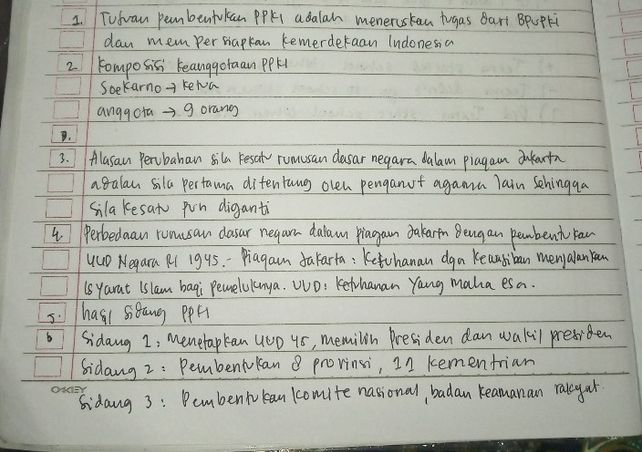 1. Tujuan pembentukan PPKI adalah meneruskan tugas dari BPUPKI
dan mempersiapkan kemerdekaan Indonesia
2. Komposisi keanggotaan PPKI
Soekarno → ketua
anggota → 9 orang
3. Alasan perubahan sila kesatu rumusan dasar negara dalam piagam Jakarta
adalah sila pertama ditentang oleh penganut agama lain sehingga
sila kesatu pun diganti
4. Perbedaan rumusan dasar negara dalam piagam Jakarta dengan pembentukan
UUD Negara RI 1945.- Piagam Jakarta: Ketuhanan dgn kewajiban menjalankan
Isyarat Islam bagi pemeluknya. UUD: ketuhanan yang maha esa.
5. hasil sidang PPKI
Sidang 1: Menetapkan UUD 45, memilih presiden dan wakil presiden
Sidang 2: Pembentukan 8 provinsi, 11 kementrian
OKEY Sidang 3: Pembentukan komite nasional, badan keamanan rakyat.